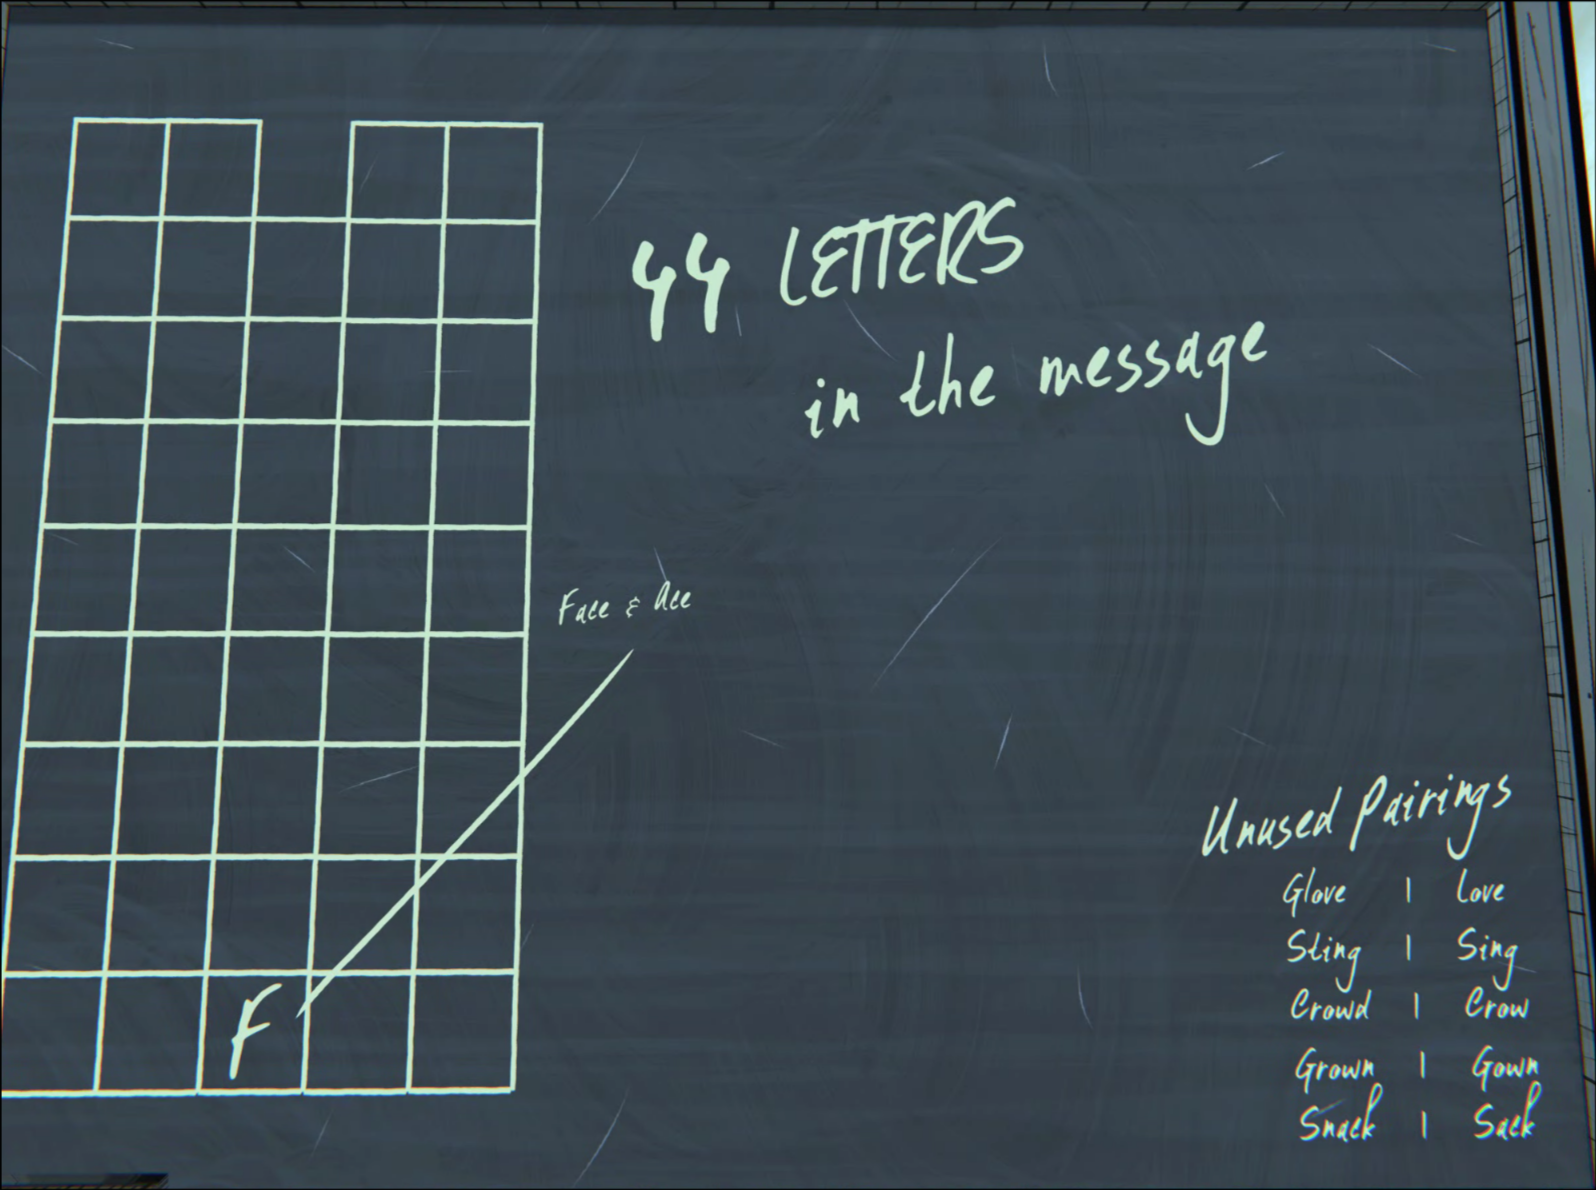 44 LETTERS
in the message
Face & Ace
F
Unused Pairings
Glove | Love
Sting | Sing
Crowd | Crow
Grown | Gown
Snack | Sack